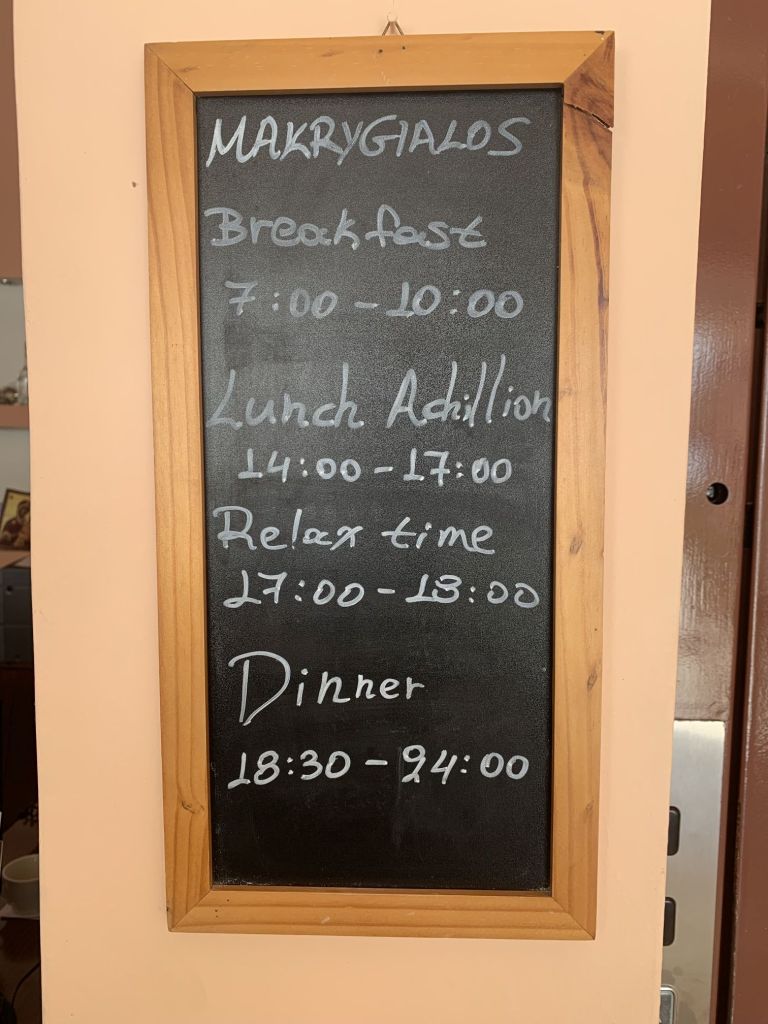 MAKRYGIALOS
Breakfast
7:00 - 10:00
Lunch Achillion
14:00 - 17:00
Relax time
17:00 - 18:00
Dinner
18:30 - 24:00